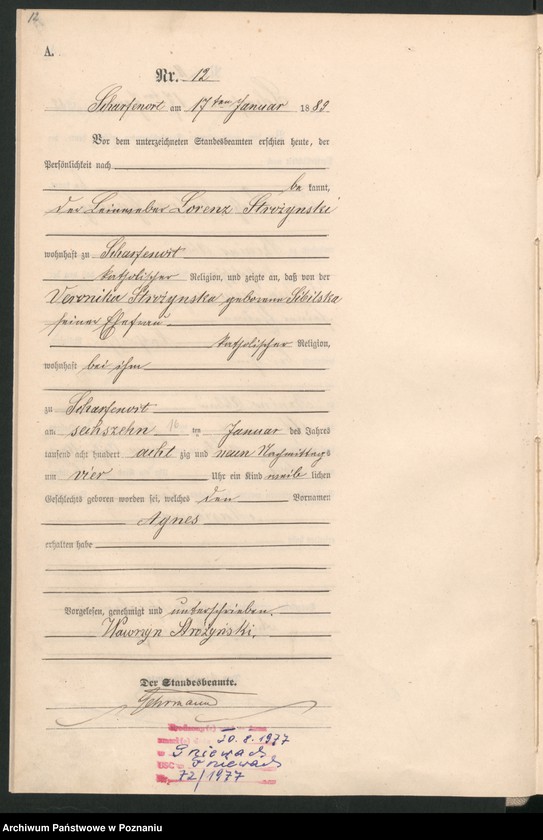 12
A.
Nr. 12
Scharfenort am 17ten Januar 1889
Vor dem unterzeichneten Standesbeamten erschien heute, der
Persönlichkeit nach
be kannt,
der Leineweber Lorenz Strożynski
wohnhaft zu Scharfenort
katholischer Religion, und zeigte an, daß von der
Veronika Strożynska geborenen Sibilska
seiner Ehefrau
katholischer Religion,
wohnhaft bei ihm
zu Scharfenort
am sechszehn 16 ten Januar des Jahres
tausend acht hundert acht zig und neun Nachmittags
um vier Uhr ein Kind weib lichen
Geschlechts geboren worden sei, welches den Vornamen
Agnes
erhalten habe
Vorgelesen, genehmigt und unterschrieben.
Wawrzyn Strożyński.
Der Standesbeamte.
20.8.1977
w Pniewach
USC w Pniewach
72/1977
Archiwum Państwowe w Poznaniu